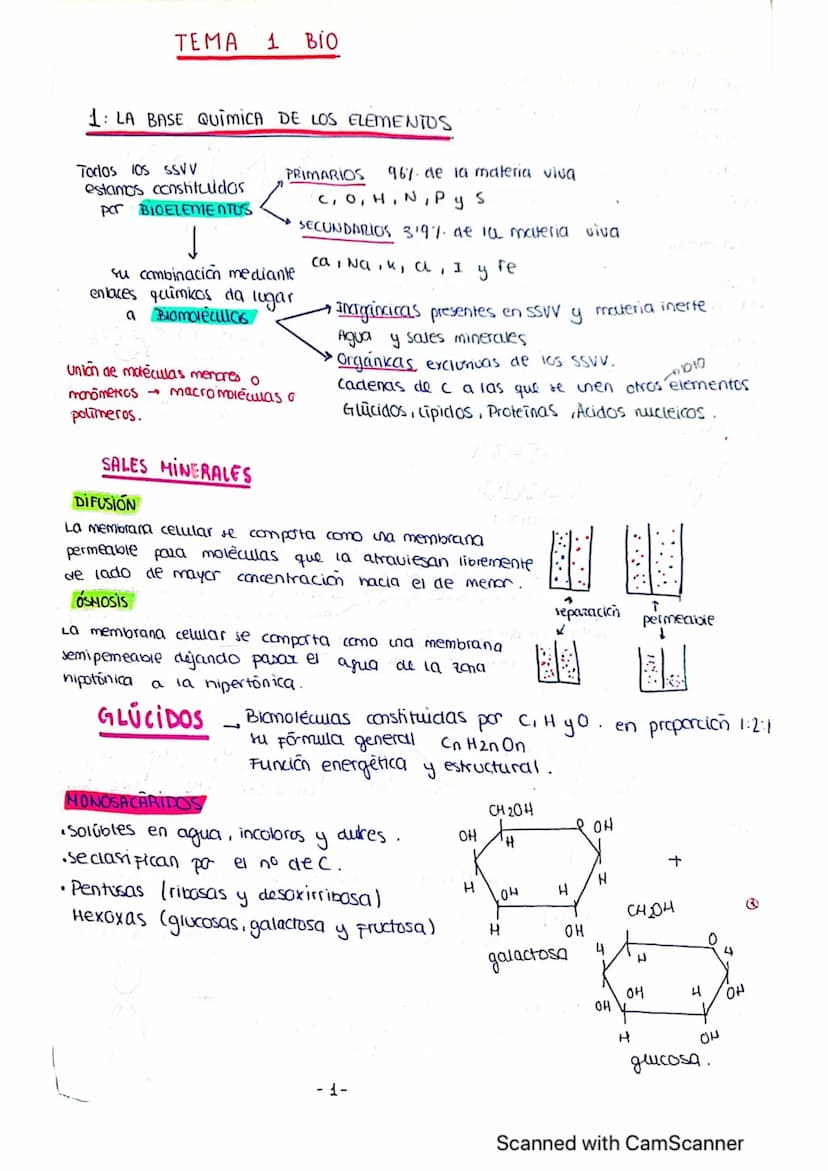 TEMA 1 BIO
1: LA BASE QUÍMICA DE LOS ELEMENTOS
Todos los SSVV
estamos constituidos
por BIOELEMENTOS
PRIMARIOS 96% de la materia viva
C, O, H, N, P y S
SECUNDARIOS 3'9% de la materia viva
Ca, Na, K, Cl, I y Fe
su combinación mediante
enlaces químicos da lugar
a Biomoléculas
Inorgánicas presentes en SSVV y materia inerte
Agua y sales minerales
Orgánicas exclusivas de los SSVV.
bio
Cadenas de C a las que se unen otros elementos
Glúcidos, Lípidos, Proteínas, Ácidos nucleicos.
Unión de moléculas menores o
monómeros → macromoléculas o
polímeros.
SALES MINERALES
DIFUSIÓN
La membrana celular se comporta como una membrana
permeable para moléculas que la atraviesan libremente
de lado de mayor concentración hacia el de menor.
separación
permeable
ÓSMOSIS
La membrana celular se comporta como una membrana
semipemeable dejando pasar el agua de la zona
hipotónica a la hipertónica.
GLÚCIDOS → Biomoléculas constituidas por C, H y O. en proporción 1:2:1
su fórmula general CnH2nOn
Función energética y estructural.
MONOSACÁRIDOS
• Solúbles en agua, incoloros y dulces.
• se clasifican por el nº de C.
• Pentosas (ribosas y desoxirribosa)
Hexoxas (glucosas, galactosa y fructosa)
CH2OH
OH
H
O OH
H
OH H
H
H OH
galactosa
+
CH2OH
H
H
O
H
OH
OH
H
OH
H OH
glucosa.
-1-
Scanned with CamScanner